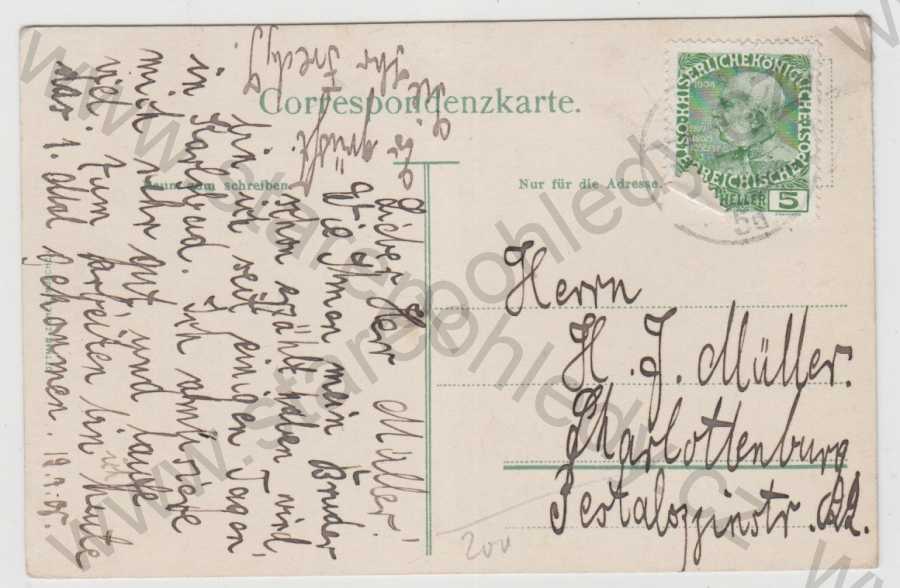 Correspondenzkarte.
Raum zum Schreiben.
Nur für die Adresse.
KAISERLICHE KÖNIGLICHE ÖSTERREICHISCHE POST
1908
HELLER 5
Herrn
H. J. Müller.
Charlottenburg
Pestalozzistr. 22.
Lieber Herr Müller!
Wie Ihnen mein Bruder
schon erzählt haben wird,
bin ich seit einigen Tagen
in Karlsbad. Ich amüsiere
mich sehr gut, und habe
viel zum arbeiten bin heute
das 1. Mal gekommen.
grüßt
Ihr Fredy
200
www.staropohledy.cz